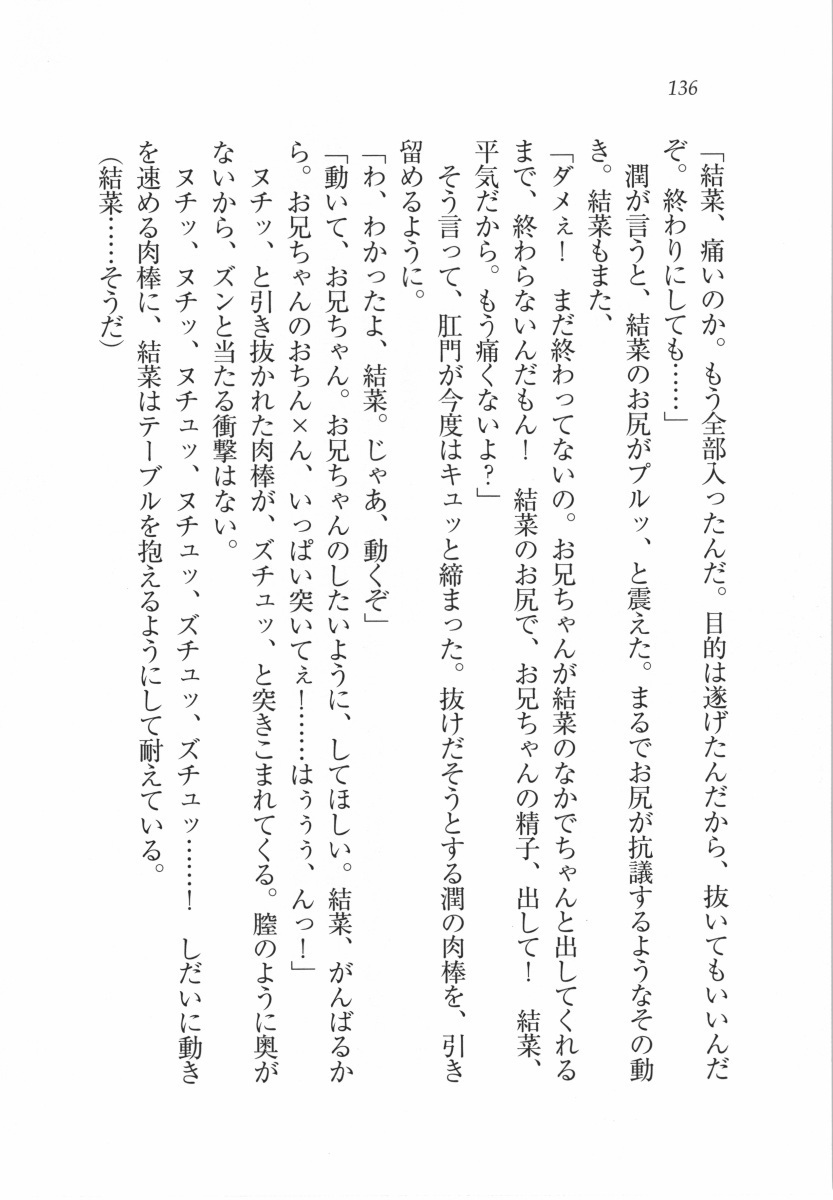 136
「結菜、痛いのか。もう全部入ったんだ。目的は遂げたんだから、抜いてもいいんだ
ぞ。終わりにしても……」
潤が言うと、結菜のお尻がプルッ、と震えた。まるでお尻が抗議するようなその動
き。結菜もまた、
「ダメぇ！　まだ終わってないの。お兄ちゃんが結菜のなかでちゃんと出してくれる
まで、終わらないんだもん！　結菜のお尻で、お兄ちゃんの精子、出して！　結菜、
平気だから。もう痛くないよ？」
そう言って、肛門が今度はキュッと締まった。抜けだそうとする潤の肉棒を、引き
留めるように。
「わ、わかったよ、結菜。じゃあ、動くぞ」
「動いて、お兄ちゃん。お兄ちゃんのしたいように、してほしい。結菜、がんばるか
ら。お兄ちゃんのおちん×ん、いっぱい突いてぇ！……はぅぅぅ、んっ！」
ヌチッ、と引き抜かれた肉棒が、ズチュッ、と突きこまれてくる。膣のように奥が
ないから、ズンと当たる衝撃はない。
ヌチッ、ヌチッ、ヌチュッ、ヌチュッ、ズチュッ、ズチュッ……！　しだいに動き
を速める肉棒に、結菜はテーブルを抱えるようにして耐えている。
（結菜……そうだ）